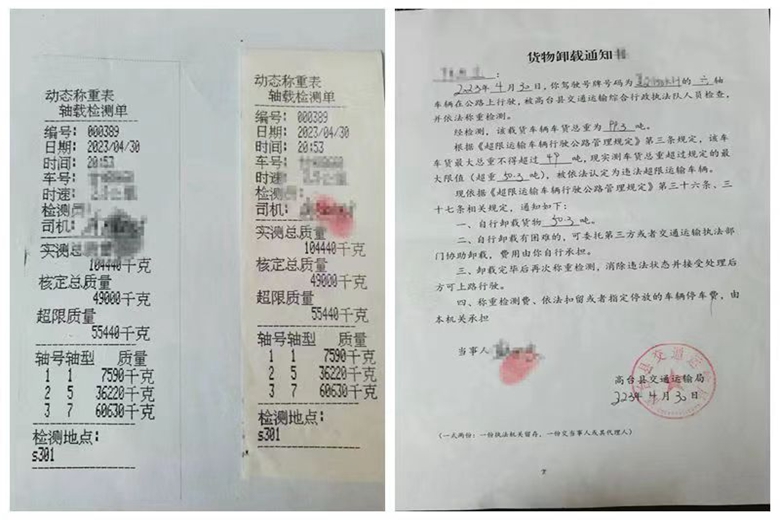 动态称重表
轴载检测单
编号: 000389
日期: 2023/04/30
时间: 20:53
车号:
时速:
检测员:
司机:
实测总质量
104440千克
核定总质量
49000千克
超限质量
55440千克
轴号轴型 质量
1 1 7590千克
2 5 36220千克
3 7 60630千克
检测地点:
s301
动态称重表
轴载检测单
编号: 000389
日期: 2023/04/30
时间: 20:53
车号:
时速:
检测员
司机:
实测总质量
104440千克
核定总质量
49000千克
超限质量
55440千克
轴号轴型 质量
1 1 7590千克
2 5 36220千克
3 7 60630千克
检测地点:
s301
货物卸载通知书
2023年4月30日,你驾驶号牌号码为 的 六 轴
车辆在公路上行驶,被高台县交通运输综合行政执法队人员检查,
并依法称重检测。
经检测,该载货车辆车货总重为 99.3 吨。
根据《超限运输车辆行驶公路管理规定》第三条规定,该车
车货最大总重不得超过 49 吨,现实测车货总重超过规定的最
大限值(超重 50.3 吨),被依法认定为违法超限运输车辆。
现依据《超限运输车辆行驶公路管理规定》第三十六条、三
十七条相关规定,通知如下:
一、自行卸载货物 50.3 吨。
二、自行卸载有困难的,可委托第三方或者交通运输执法部
门协助卸载,费用由你自行承担。
三、卸载完毕后再次称重检测,消除违法状态并接受处理后
方可上路行驶。
四、称重检测费、依法扣留或者指定停放的车辆停车费,由
本机关承担
当事人
高台县交通运输局
2023年4月30日
(一式两份:一份执法机关留存,一份交当事人或其代理人)